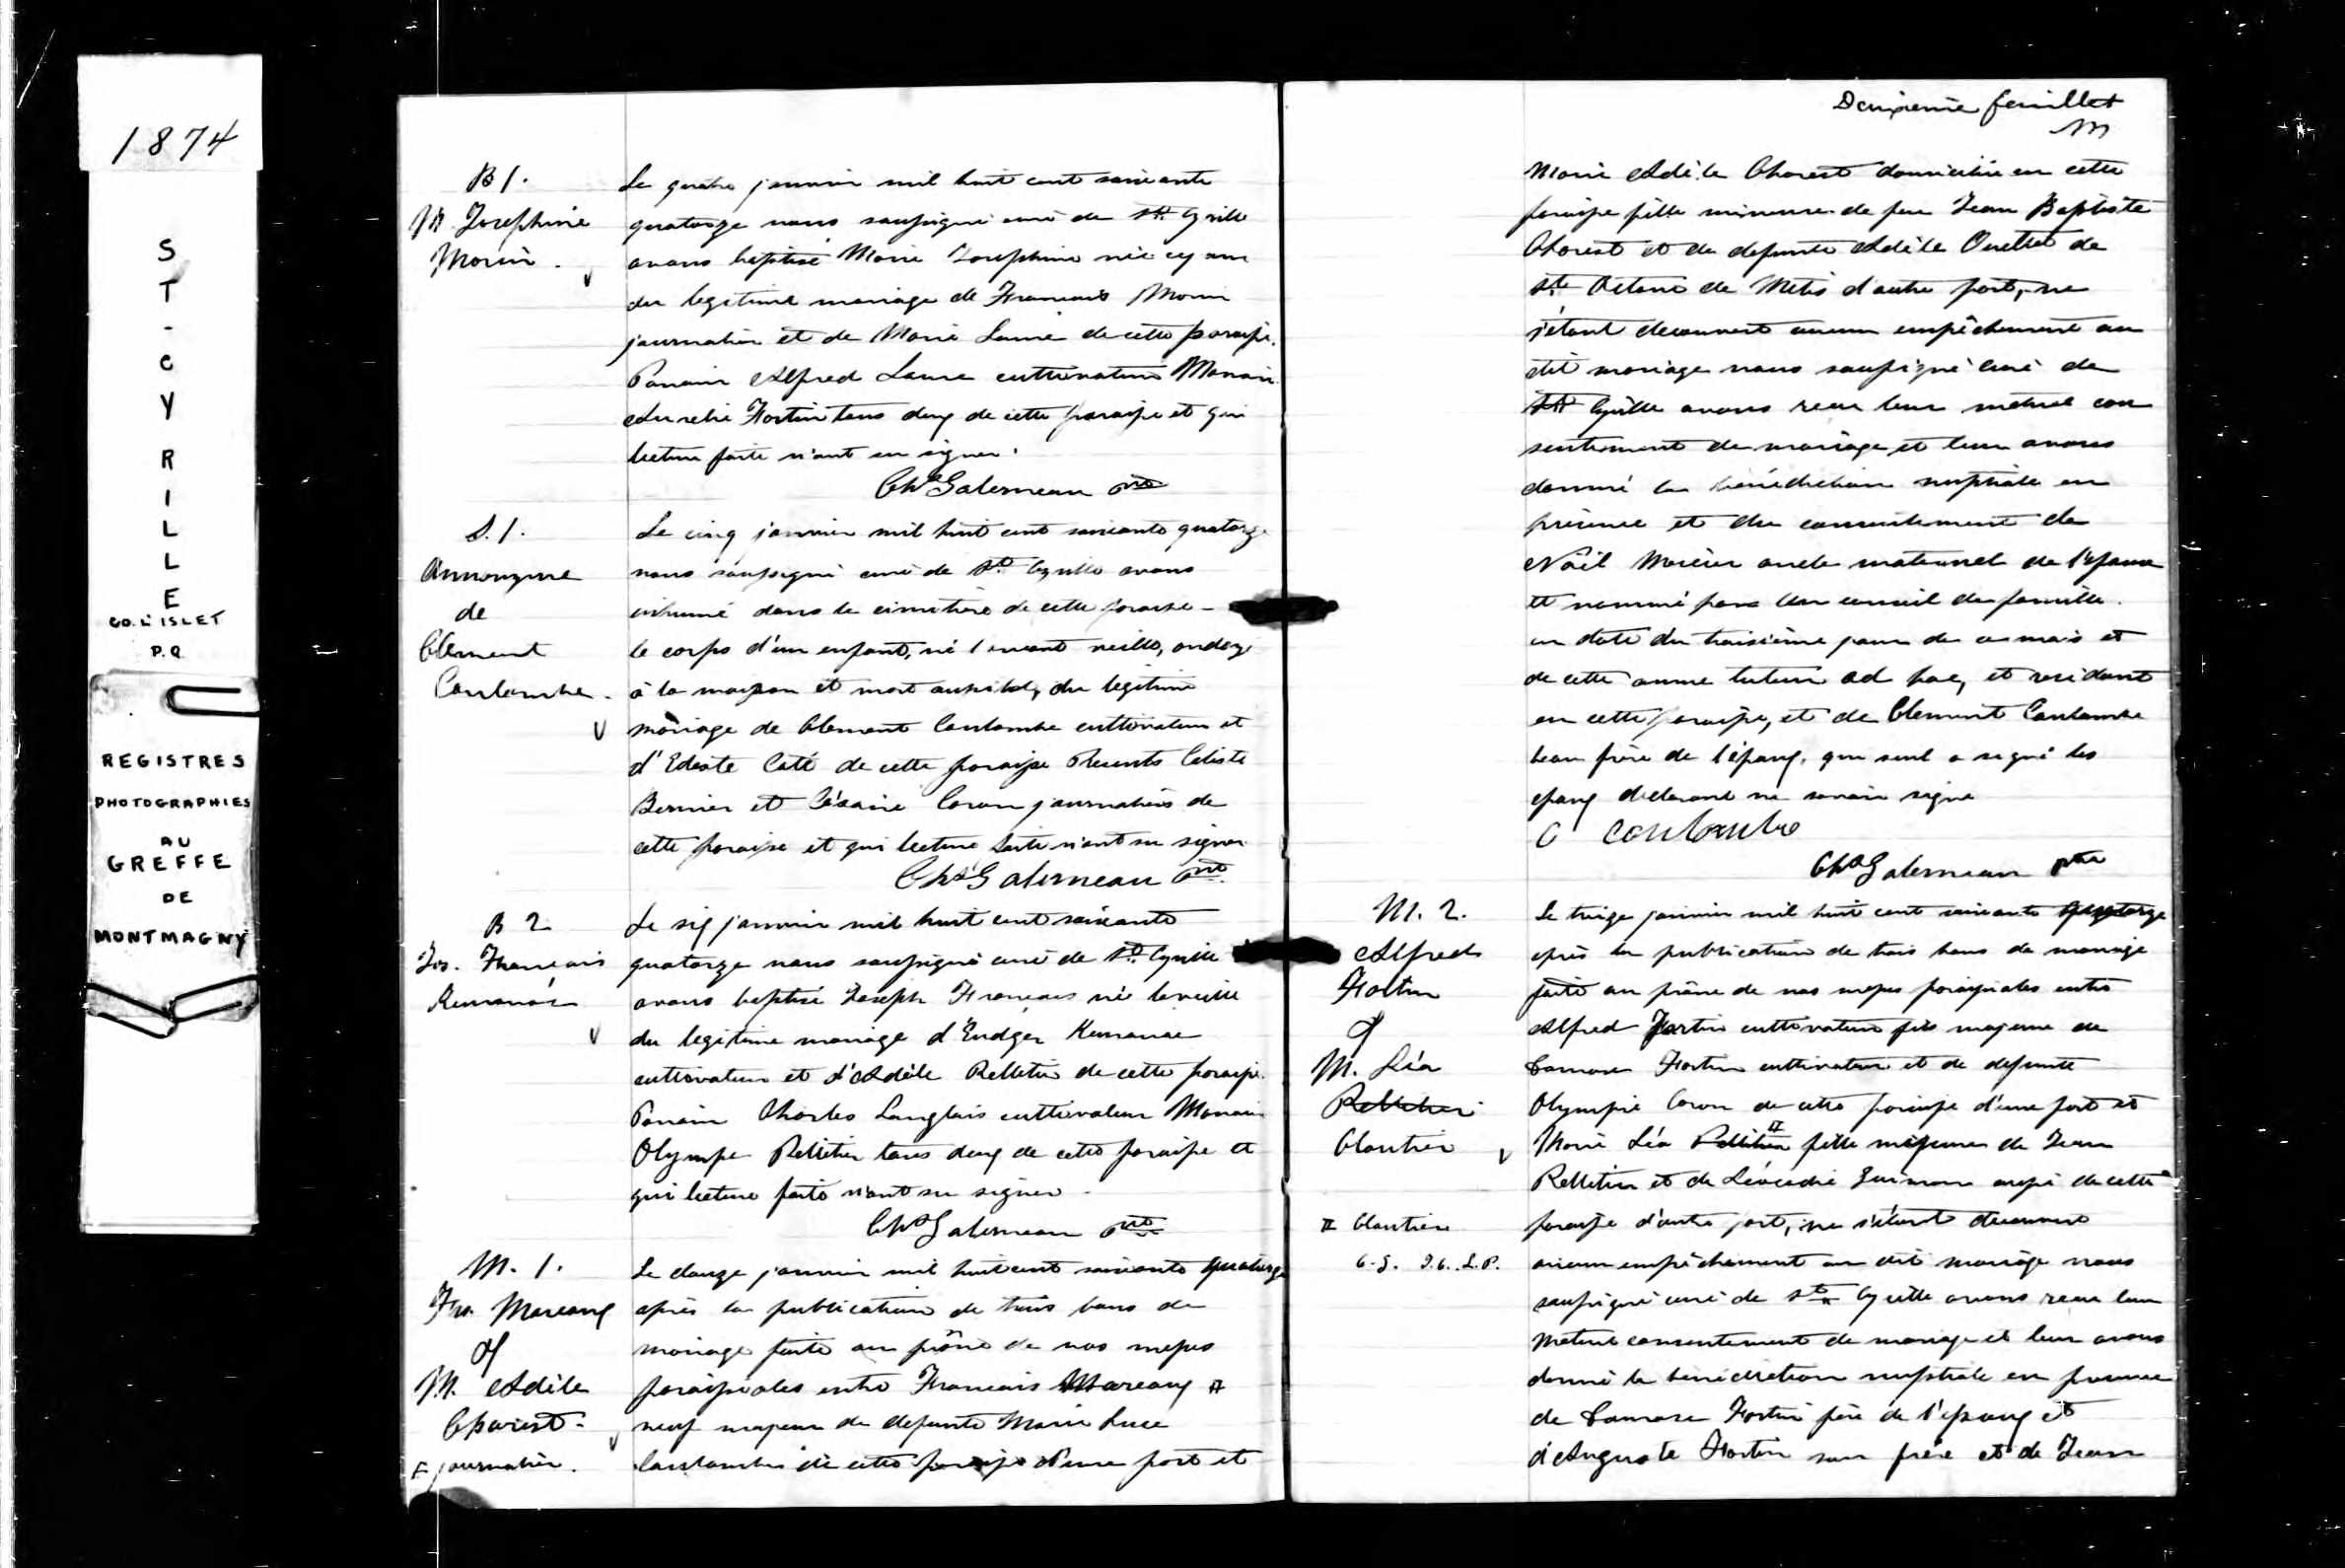 1874
S
T
-
C
Y
R
I
L
L
E
CO. L'ISLET
P.Q
REGISTRES
PHOTOGRAPHIES
AU
GREFFE
DE
MONTMAGNY
B 1.
M. Josephine
Morin.
Le quatre janvier mil huit cent soixante
quatorze nous soussigné curé de St Cyrille
avons baptisé Marie Josephine née
du legitime mariage de Francois Morin
journalier et de Marie de cette paroisse.
Parrain Alfred cultivateur Marraine
Aurelie Fortin tous deux de cette paroisse et qui
lecture faite n'ont su signer.
Chs Galerneau ptre
S. 1.
Annonyme
de
Clement
Coulombe.
Le cinq janvier mil huit cent soixante quatorze
nous soussigné curé de St Cyrille avons
inhumé dans le cimetière de cette paroisse
le corps d'un enfant, né l'avant veille, ondoyé
à la maison et mort aussitot, du legitime
mariage de Clement Coulombe cultivateur et
d' Coté de cette paroisse Presents Celeste
Bernier et Césaire Caron journaliers de
cette paroisse et qui lecture faite n'ont su signer
Chs Galerneau ptre
B 2
Jos. Francois
Le six janvier mil huit cent soixante
quatorze nous soussigné curé de St Cyrille
avons baptisé Joseph Francois né la veille
du legitime mariage d'
cultivateur et d'Adèle Pelletier de cette paroisse.
Parrain Charles Langlais cultivateur Marraine
Olympe Pelletier tous deux de cette paroisse et
qui lecture faite n'ont su signer.
Chs Galerneau ptre
M. 1.
Frs. Marcoux
&
M. Adèle
Chorest.
# journalier.
Le douze janvier mil huit cent soixante quatorze
après la publication de trois bans de
mariage faite au prône de nos messes
paroissiales entre Francois Marcoux #
veuf majeur de defunte Marie Luce
Coulombe de cette paroisse d'une part et
Deuxieme feuillet
Marie Adèle Chorest domiciliée en cette
paroisse fille mineure de feu Jean Baptiste
Chorest et de defunte Adèle Ouellet de
Ste Octave de Metis d'autre part, ne
s'étant decouvert aucun empêchement au
dit mariage nous soussigné curé de
St Cyrille avons recu leur mutuel con
sentement de mariage et leur avons
donné la bénédiction nuptiale en
présence et du consentement de
Noël Mercier oncle maternel de l'epouse
et nommé par un conseil de famille
en date du troisième jour de ce mois et
de cette annee tuteur ad hoc, et residant
en cette paroisse, et de Clement Coulombe
beau frère de l'époux, qui seul a signé les
epoux declarant ne savoir signer
C Coulombe
Chs Galerneau ptre
M. 2.
Alfred
Fortin
&
M. Léa
Pelletier
Cloutier
# Cloutier
C.G. J.C. L.P.
Le treize janvier mil huit cent soixante quatorze
après la publication de trois bans de mariage
faite au prône de nos messes paroissiales entre
Alfred Fortin cultivateur fils majeur de
Damase Fortin cultivateur et de defunte
Olympie Caron de cette paroisse d'une part et
Marie Léa Pelletier # fille mineure de Jean
Pelletier et de Léocadie aussi de cette
paroisse d'autre part, ne s'étant decouvert
aucun empêchement au dit mariage nous
soussigné curé de St Cyrille avons recu leur
mutuel consentement de mariage et leur avons
donné la bénédiction nuptiale en presence
de Damase Fortin père de l'epoux et
d'Auguste Fortin son frère et de Jean